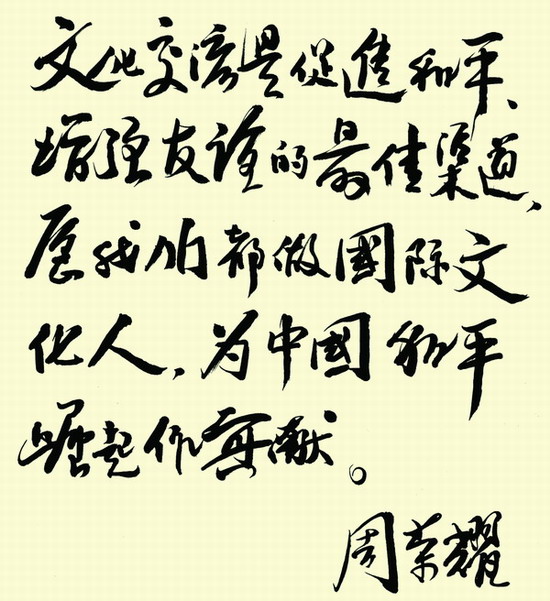 文化交流是促進和平、
增强友谊的最佳渠道，
愿我们都做國际文
化人，为中國和平
崛起作贡献。
周荣耀